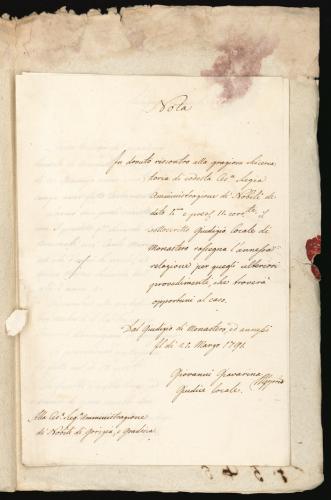 Nota
In dovuto riscontro alla graziosa
di codesta Ces.ª Regia
Amministrazione di Nobili di
dato 1mo e 11 corr.te il
sottoscritto Giudizio locale di
Monastero rassegna l'annessa
relazione per quegli ulteriori
provvedimenti, che troverà
opportuni al caso.
Dal Giudizio di Monastero, ed annessi
li di 21. Marzo 1791.
Giovanni Gavarina
Giudice locale.
Alla Ces.ª Reg.ª Amministrazione
di Nobili di Gorizia, e Gradisca